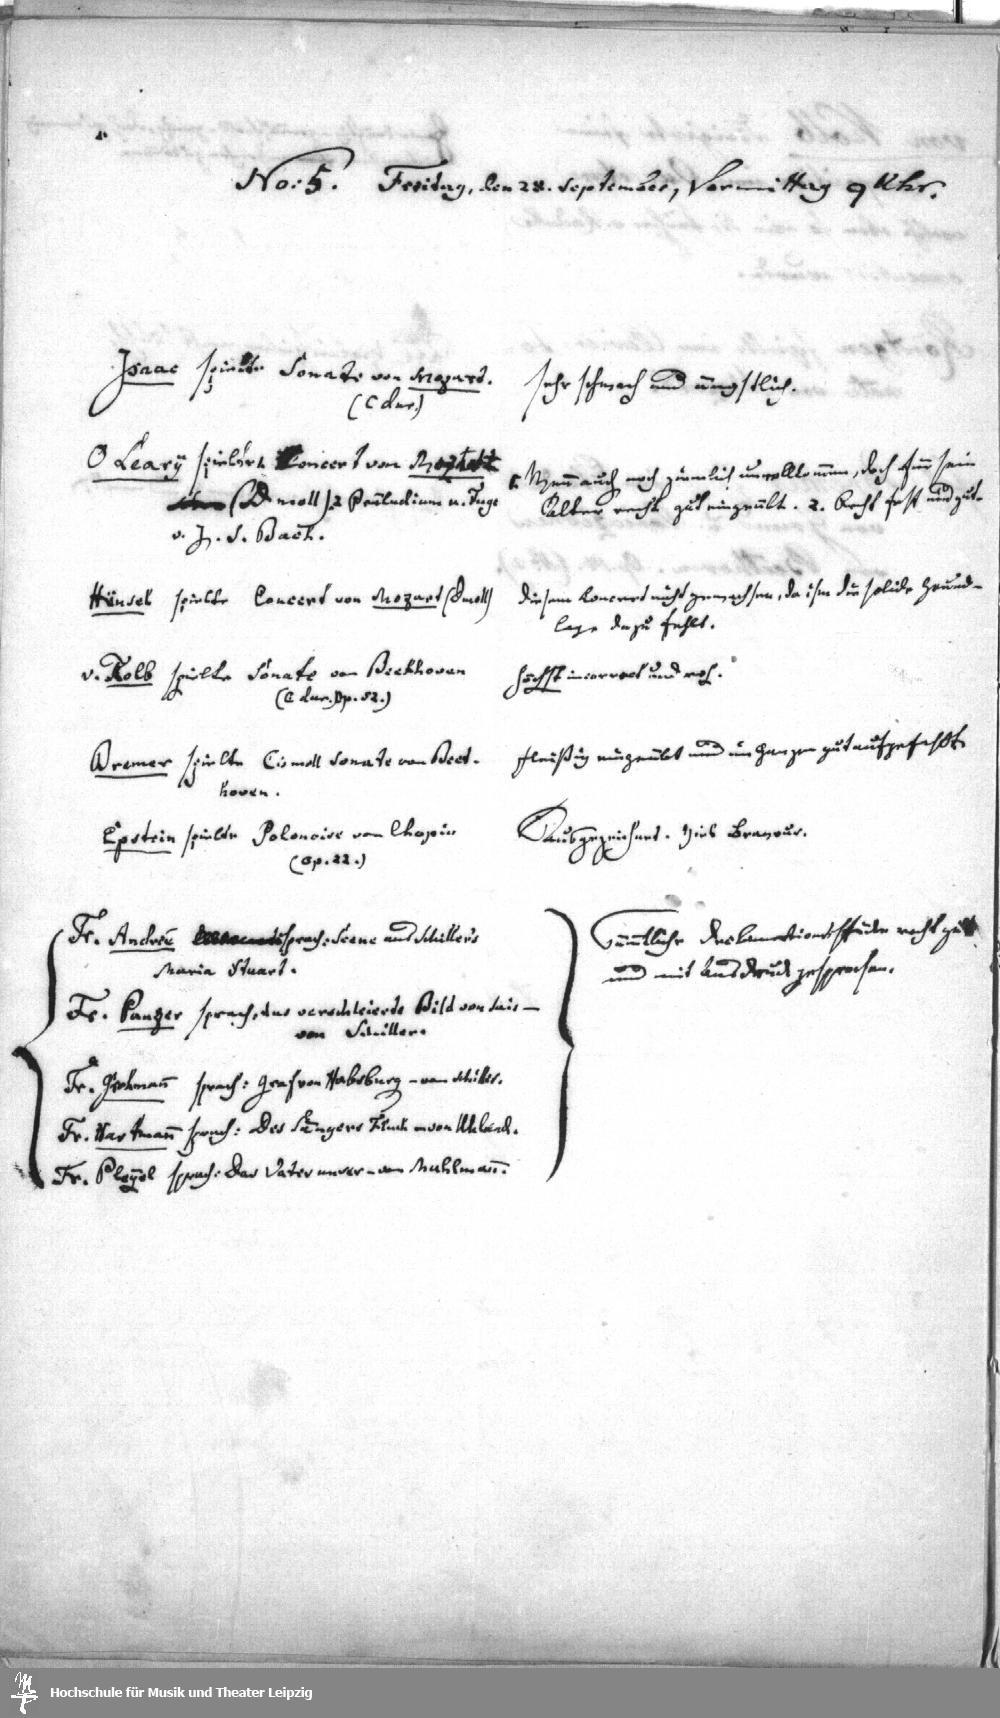 No: 5. Freitag, den 28. September, Vormittag 9 Uhr.
Isaac spielte Sonate von Mozart.
(C dur.)
sehr schwach und ängstlich.
O Leary spielte 1. Concert von Mozart
(D moll). 2 Präludium u. Fuge
v. J. S. Bach.
1. Wenn auch noch ziemlich unvollkommen, doch für sein
Alter recht gut eingeübt. 2. Recht fest und gut.
Hänsel spielte Concert von Mozart (D moll)
diesem Concert nicht gewachsen, da ihm die solide Grund-
lage dazu fehlt.
v. Kolb spielte Sonate von Beethoven
(C dur. Op. 52.)
höchst incorrect und roh.
Bremer spielte Cis moll Sonate von Beet-
hoven.
fleißig eingeübt und im Ganzen gut aufgefaßt.
Epstein spielte Polonoise von Chopin
(Op. 22.)
Ausgezeichnet. Viel Bravour.
Fr. Andreä sprach: Scene aus Schiller's
Maria Stuart.
Fr. Panzer sprach, das verschleierte Bild von Sais –
von Schiller.
Fr. Grohmañ sprach: Graf von Habsburg – von Schiller.
Fr. Hartmañ sprach: Des Sängers Fluch von Uhland.
Fr. Pleyel sprach: Das Vater unser – von Mahlmañ.
Sämtliche Declamationsstücke recht gut
und mit Ausdruck gesprochen.
Hochschule für Musik und Theater Leipzig